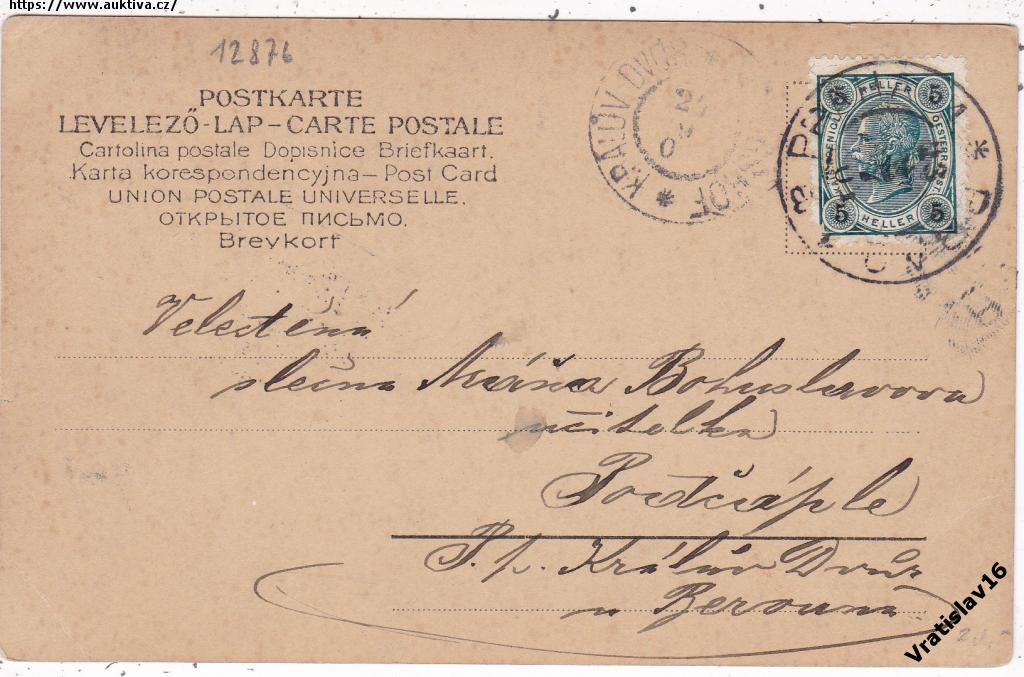 https://www.auktiva.cz/
12876
POSTKARTE
LEVELEZŐ-LAP-CARTE POSTALE
Cartolina postale Dopisnice Briefkaart.
Karta korespondencyjna-Post Card
UNION POSTALE UNIVERSELLE.
ОТКРЫТОЕ ПИСЬМО.
Brevkort
* KRÁLŮV DVŮR *
HOF
5 HELLER 5
5 HELLER 5
Velectěná
slečna Máňa Bohuslavova
učitelka
Počáple
P. p. Králův Dvůr
u Berouna
Vratislav16